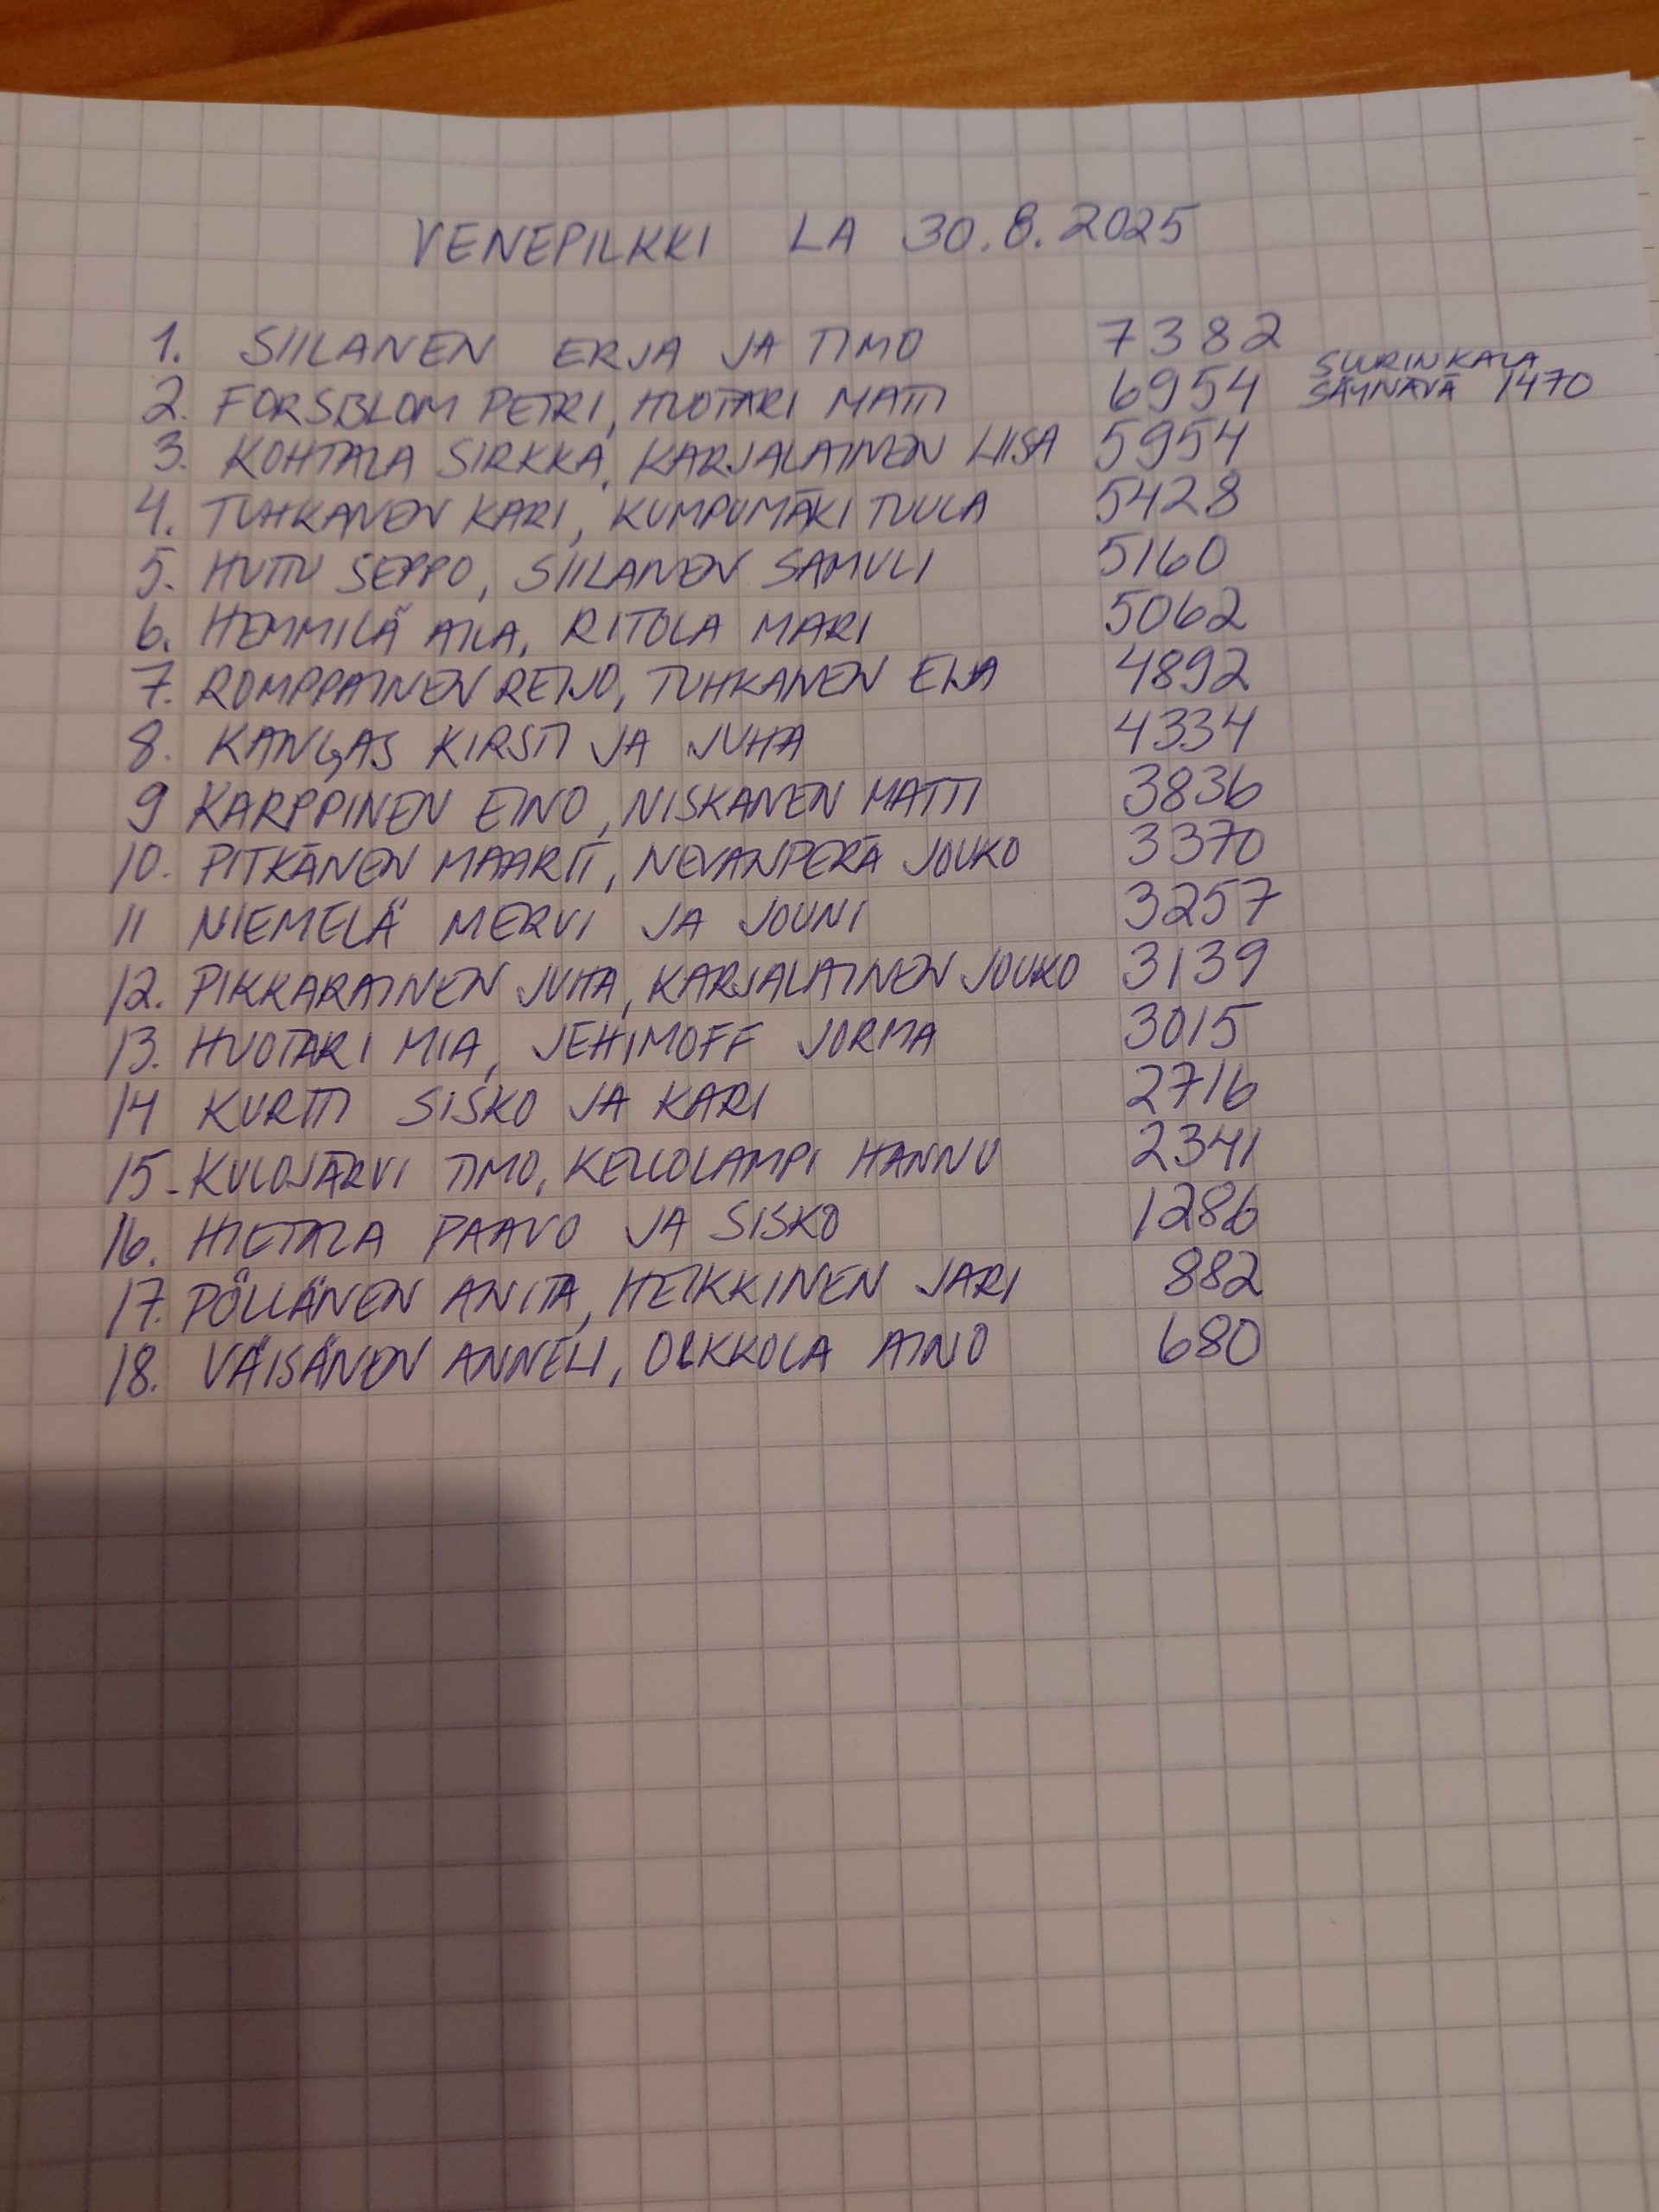 VENEPILKKI LA 30.8.2025
1. SIILANEN ERJA JA TIMO 7382
2. FORSBLOM PETRI, HUOTARI MATTI 6954 SUURIN KALA SÄYNÄVÄ 1470
3. KOHTALA SIRKKA, KARJALAINEN LIISA 5954
4. TUHKANEN KARI, KUMPUMÄKI TUULA 5428
5. HUTTU SEPPO, SIILANEN SAMULI 5160
6. HEMMILÄ AILA, RITOLA MARI 5062
7. ROMPPAINEN REIJO, TUHKANEN EIJA 4892
8. KANGAS KIRSTI JA JUHA 4334
9 KARPPINEN EINO, NISKANEN MATTI 3836
10. PITKÄNEN MAARIT, NEVANPERÄ JOUKO 3370
11 NIEMELÄ MERVI JA JOUNI 3257
12. PIKKARAINEN JUHA, KARJALAINEN JOUKO 3139
13. HUOTARI MIA, JEHIMOFF JORMA 3015
14 KURTTI SISKO JA KARI 2716
15. KULOJÄRVI TIMO, KELLOLAMPI HANNU 2341
16. HIETALA PAAVO JA SISKO 1286
17. PÖLLÄNEN ANITA, HEIKKINEN JARI 882
18. VÄISÄNEN ANNELI, OLKKOLA AINO 680